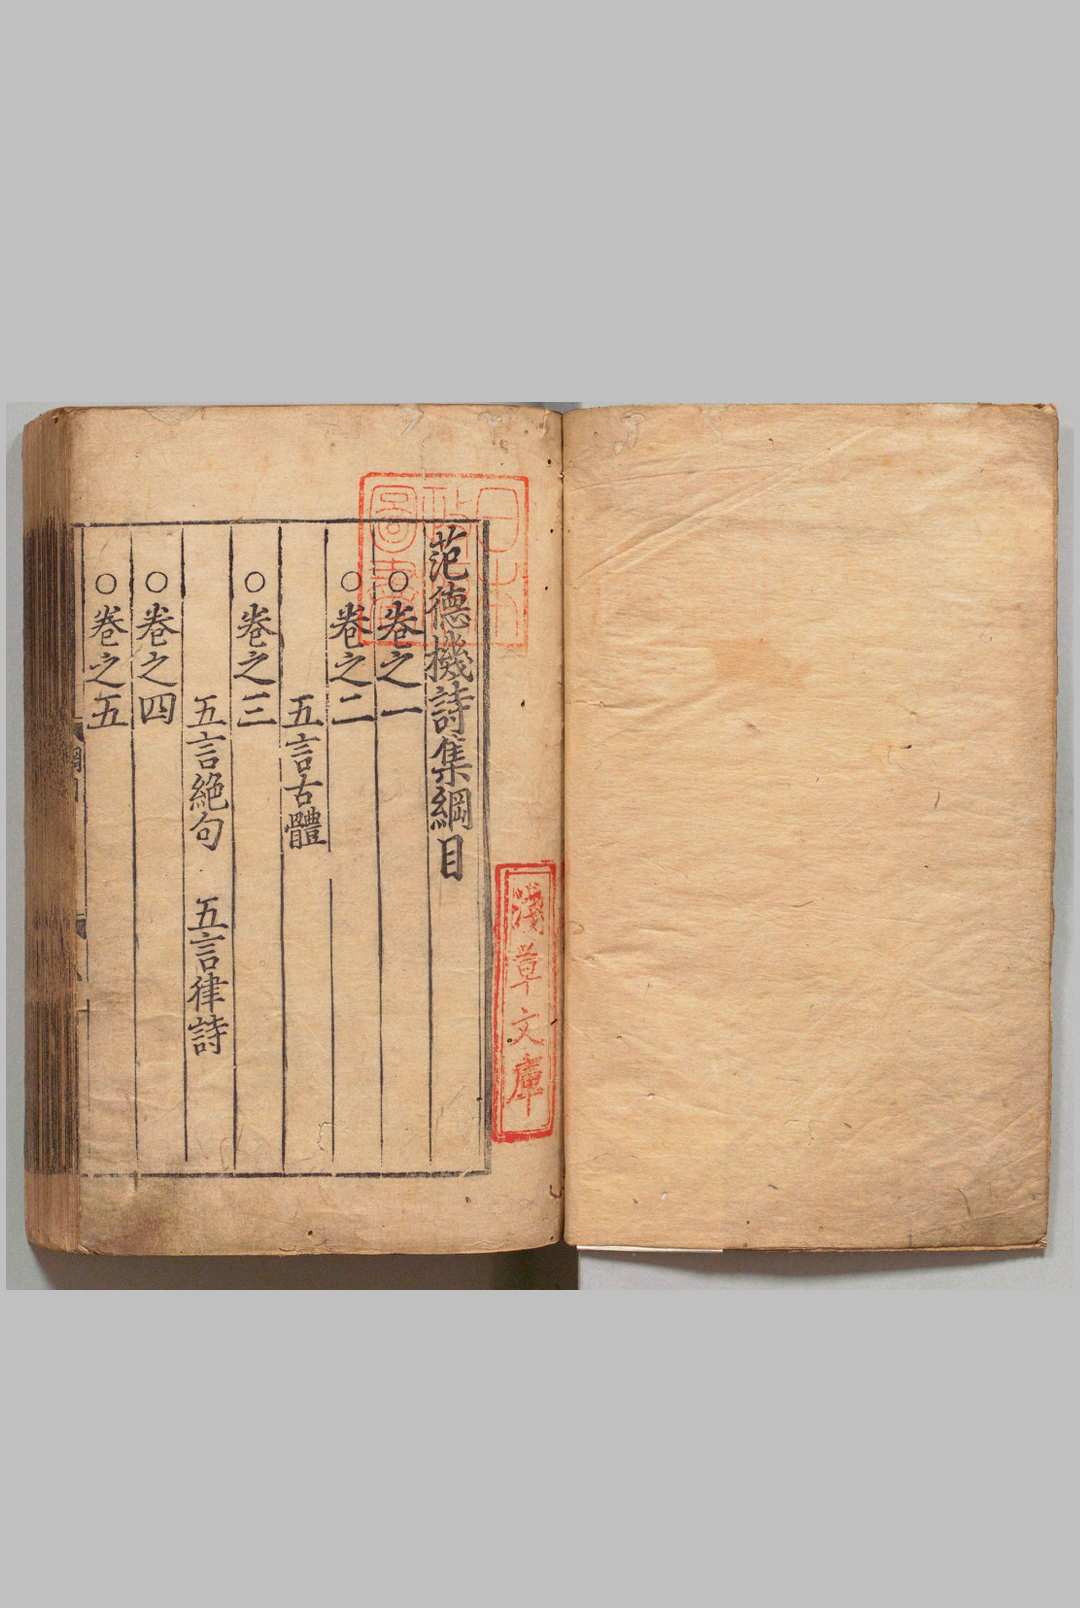 范德機詩集綱目
○卷之一
○卷之二
五言古體
○卷之三
五言絶句　五言律詩
○卷之四
○卷之五
綱目
日本
政府
圖書
淺草文庫